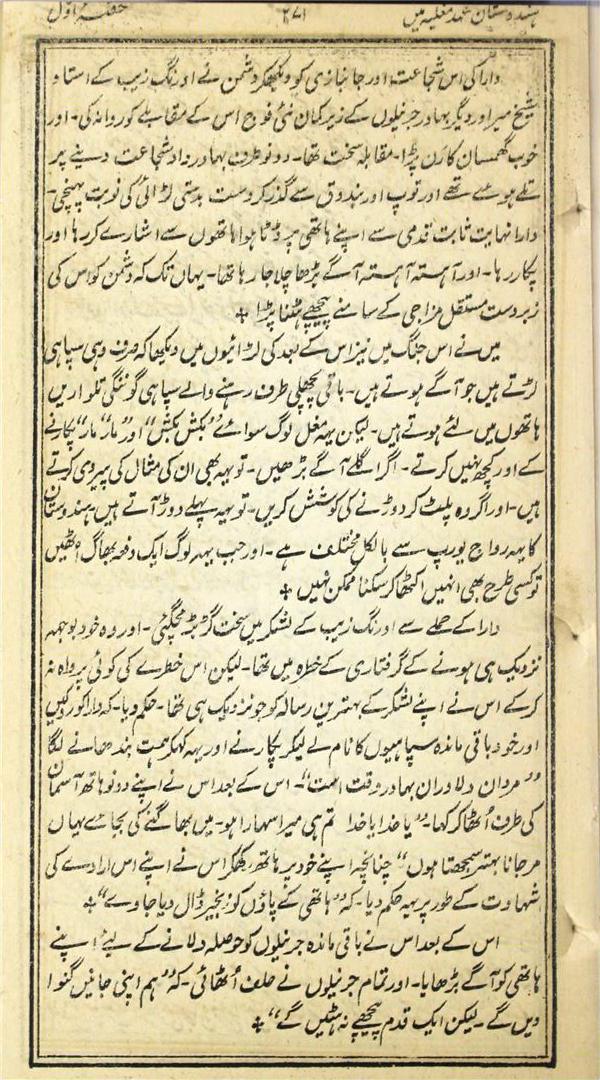 ہندوستان عہد مغلیہ میں ۲۷۱ حصہ اول
دارا کی اس شجاعت اور جانبازی کو دیکھکر دشمن نے اورنگ زیب کے استاد
شیخ میر اور دیگر بہادر جرنیلوں کے زیر کمان نئی فوج اس کے مقابلے کو روانہ کی۔ اور
خوب گھمسان کا رن پڑا۔ مقابلہ سخت تھا۔ دونو طرف بہادر دادِ شجاعت دینے پر
تلے ہوئے تھے اور توپ اور بندوق سے گذر کر دست بدستی لڑائی کی نوبت پہنچی۔
دارا نہایت ثابت قدمی سے اپنے ہاتھی پر ڈٹا ہوا ہاتھوں سے اشارے کر رہا اور
پکار رہا۔ اور آہستہ آہستہ آگے بڑھا چلا جا رہا تھا۔ یہاں تک کہ دشمن کو اس کی
زبردست مستقل مزاجی کے سامنے پیچھے ہٹنا پڑا ✣
میں نے اس جنگ میں نیز اس کے بعد کی لڑائیوں میں دیکھا کہ صرف وہی سپاہی
لڑتے ہیں جو آگے ہوتے ہیں۔ باقی پچھلی طرف رہنے والے سپاہی گو ننگی تلواریں
ہاتھوں میں لئے ہوتے ہیں۔ لیکن یہ مغل لوگ سوائے "بکش بکش" اور "مار" مار" پکارنے
کے اور کچھ نہیں کرتے۔ اگر اگلے آگے بڑھیں۔ تو یہ بھی ان کی مثال کی پیروی کرتے
ہیں۔ اور اگر وہ پلٹ کر دوڑنے کی کوشش کریں۔ تو یہ پہلے دوڑ آتے ہیں۔ ہندوستان
کا یہ رواج یورپ سے بالکل مختلف ہے۔ اور جب یہہ لوگ ایک دفعہ بھاگ اٹھیں
تو کسی طرح بھی انہیں اکٹھا کر سکنا ممکن نہیں ✣
دارا کے حملے سے اورنگ زیب کے لشکر میں سخت گڑبڑ مچ گئی۔ اور وہ خود بوجہ
نزدیک ہی ہونے کے گرفتاری کے خطرہ میں تھا۔ لیکن اس خطرے کی کوئی پرواہ نہ
کر کے اس نے اپنے لشکر کے بہترین رسالہ کو جو نزدیک ہی تھا۔ حکم دیا۔ کہ دارا کو روکیں
اور خود باقی ماندہ سپاہیوں کا نام لے لیکر پکارنے اور یہ کہکر ہمت بندھانے لگا
"مردان دلاوران بہادر وقت است"۔ اس کے بعد اس نے اپنے دونو ہاتھ آسمان
کی طرف اُٹھا کر کہا۔ "یا خدا یا خدا تم ہی میرا سہارا ہو۔ میں بھاگنے کی بجائے یہاں
مر جانا بہتر سمجھتا ہوں" چنانچہ اپنے خود پر ہاتھ رکھکر اس نے اپنے اس ارادے کی
شہادت کے طور پر یہ حکم دیا۔ کہ "ہاتھی کے پاؤں کو زنجیر ڈال دیا جاوے" ✣
اس کے بعد اس نے باقی ماندہ جرنیلوں کو حوصلہ دلانے کے لیے اپنے
ہاتھی کو آگے بڑھایا۔ اور تمام جرنیلوں نے حلف اُٹھائی۔ کہ "ہم اپنی جانیں گنوا
دیں گے۔ لیکن ایک قدم پیچھے نہ ہٹیں گے" ✣